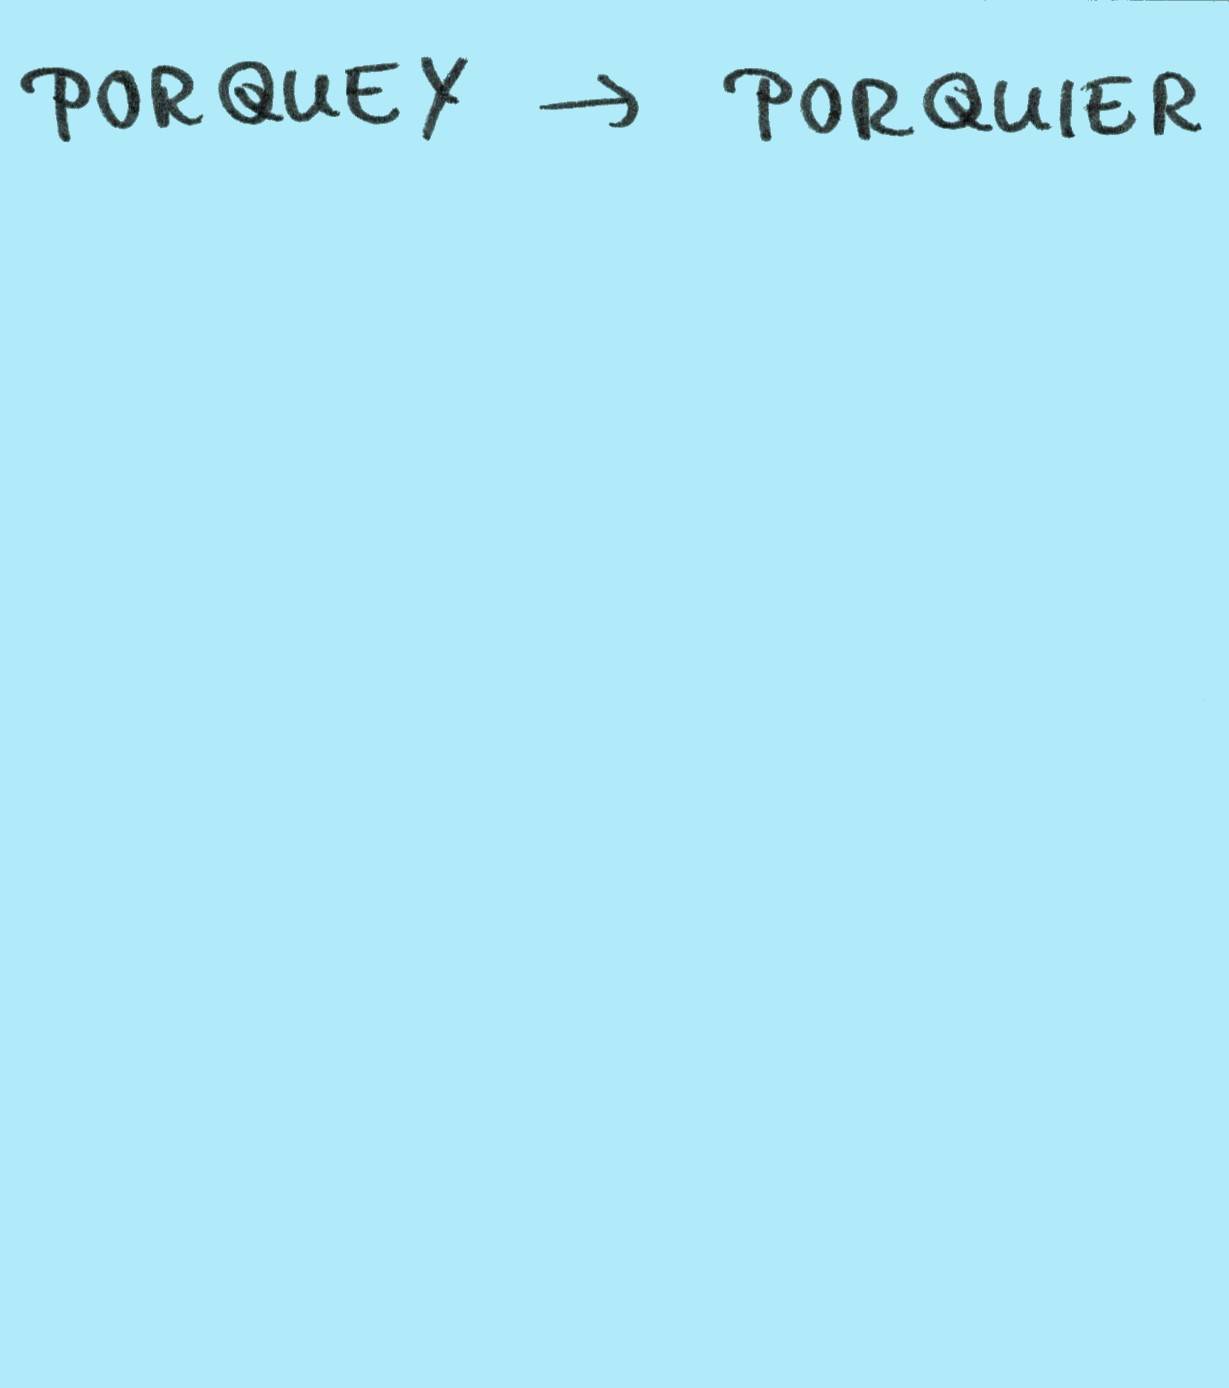 PORQUEY → PORQUIER